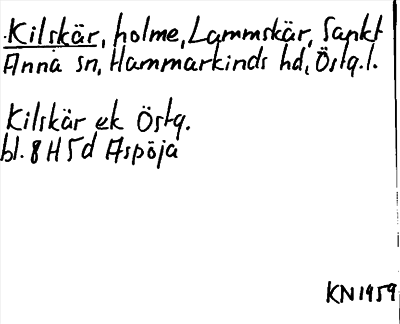 Kilskär, holme, Lammskär, Sankt
Anna sn, Hammarkinds hd, Östg.l.
Kilskär ek Östg.
bl. 8 H 5 d Aspöja
KN 1959